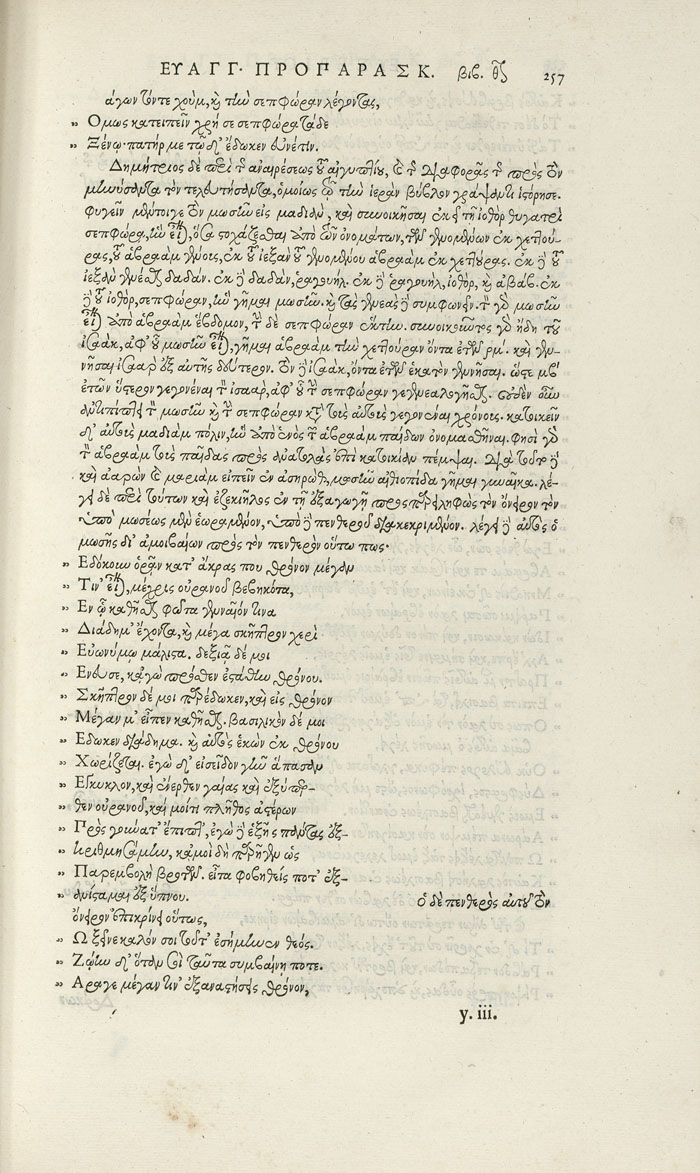 ΕΥΑΓΓ· ΠΡΟΠΑΡΑΣΚ. βιβ. θ 257
ἄγων τόντε χοὺμ, καὶ τὴν σεπφώραν λέγοντας,
„ Ομως κατειπεῖν χρή σε σεπφώρα τάδε
„ Ξένῳ· πατήρ με τῷ δ' ἔδωκεν εὐνέτιν.
Δημήτριος δὲ περὶ τῆς ἀναιρέσεως τοῦ αἰγυπτίου, καὶ τῆς διαφορᾶς τῆς πρὸς τὸν
μηνύσαντα τὸν τελευτήσαντα, ὁμοίως τῷ τὴν ἱερὰν βύβλον γράψαντι ἱστόρησε.
φυγεῖν μέντοιγε τὸν μωσῆν εἰς μαδιὰμ, καὶ συνοικῆσαι ἐκεῖ τῇ ἰοθὸρ θυγατρὶ
σεπφώρα, ἣν εἶναι, ὅσα στοχάζεσθαι ἀπὸ τῶν ὀνομάτων, τῶν γενομένων ἐκ χετούρ-
ρας, τοῦ ἀβραὰμ γένοις, ἐκ τοῦ ἰεξὰν τοῦ γενομένου ἀβραὰμ ἐκ χετούρας. ἐκ δὲ τοῦ
ἰεξὰν γενέσθαι δαδάν. ἐκ δὲ δαδὰν, ῥαγουήλ. ἐκ δὲ ῥαγουὴλ, ἰοθὸρ, καὶ ἀβάβ. ἐκ
δὲ τοῦ ἰοθὸρ, σεπφώραν, ἣν γῆμαι μωσῆν. καὶ τὰς γενεὰς δὲ συμφωνεῖν. τὸν γὰρ μωσῆν
εἶναι ἀπὸ ἀβραὰμ ἕβδομον, τὴν δὲ σεπφώραν ἕκτην. συνοικοῦντος γὰρ ἤδη τοῦ
ἰσαὰκ, ἀφ' οὗ μωσῆν εἶναι, γῆμαι ἀβραὰμ τὴν χετούραν ὄντα ἐτῶν ρμ'. καὶ γεν-
νῆσαι ἰσαὰρ ἐξ αὐτῆς δεύτερον. τὸν δὲ ἰσαὰκ, ὄντα ἐτῶν ἑκατὸν γεννῆσαι. ὥστε μβ'
ἐτῶν ὕστερον γεγονέναι τὸν ἰσαὰρ, ἀφ' οὗ τὴν σεπφώραν γεγενεαλογῆσθαι. οὐδὲν οὖν
ἀντιπίπτει τὸν μωσῆν καὶ τὴν σεπφώραν κατὰ τοὺς αὐτοὺς γεγονέναι χρόνους. κατοικεῖν
δ' αὐτοὺς μαδιὰμ πόλιν, ἣν ἀπὸ ἑνὸς τῶν ἀβραὰμ παίδων ὀνομασθῆναι. φησὶ γὰρ
τὸν ἀβραὰμ τοὺς παῖδας πρὸς ἀνατολὰς ἐπὶ κατοικίαν πέμψαι. διὰ τοῦτο δὲ
καὶ ἀαρὼν καὶ μαριὰμ εἰπεῖν ἐν ἀσηρὼθ, μωσῆν αἰθιοπίδα γῆμαι γυναῖκα. λέ-
γει δὲ περὶ τούτων καὶ ἐζεκιῆλος ἐν τῇ ἐξαγωγῇ προσπαρειληφὼς τὸν ὄνειρον τὸν
ὑπὸ μωσέως μὲν ἑωραμένον, ὑπὸ δὲ πενθεροῦ διακεκριμένον. λέγει δὲ αὐτὸς ὁ
μωσῆς δι' ἀμοιβαίων πρὸς τὸν πενθερὸν οὕτω πως·
„ Εδόκουν ὁρᾷν κατ' ἄκρας που θρόνον μέγαν
„ Τιν' εἶναι, μέχρις οὐρανοῦ βεβηκότα,
„ Εν ᾧ καθῆσθαι φῶτα γενναῖόν τινα
„ Διάδημ' ἔχοντα, καὶ μέγα σκῆπτρον χερὶ
„ Εὐωνύμῳ μάλιστα. δεξιᾷ δέ μοι
„ Ενευσε, κἀγὼ πρόσθεν ἐστάθην θρόνου.
„ Σκῆπτρον δέ μοι παρέδωκεν, καὶ εἰς θρόνον
„ Μέγαν μ' εἶπεν καθῆσθαι. βασιλικὸν δέ μοι
„ Εδωκεν διάδημα. καὶ αὐτὸς ἑκὼν ἐκ θρόνου
„ Χωρίζεται. ἐγὼ δ' εἰσεῖδον γῆν ἅπασαν
„ Εγκυκλον, καὶ ἔνερθεν γαίας καὶ ἐξύπερ-
„ θεν οὐρανοῦ, καί μοί τι πλῆθος ἀστέρων
„ Πρὸς γούνατ' ἔπιπτ', ἐγὼ δὲ ἑξῆς πάντας ἐξ-
„ ηριθμησάμην, κἀμοὶ δὴ παρῆγεν ὡς
„ Παρεμβολὴ βροτῶν. εἶτα φοβηθείς ποτ' ἐξ-
„ ανίσταμαι ἐξ ὕπνου. ὁ δὲ πενθερὸς αὐτοῦ τὸν
ὄνειρον ἐπικρίνει οὕτως,
„ Ω ξένε καλόν σοι τοῦτ' ἐσήμηνεν θεός.
„ Ζῴην δ' ὅταν σοι ταῦτα συμβαίνῃ ποτε.
„ Αραγε μέγαν τιν' ἐξαναστήσεις θρόνον,
y. iii.